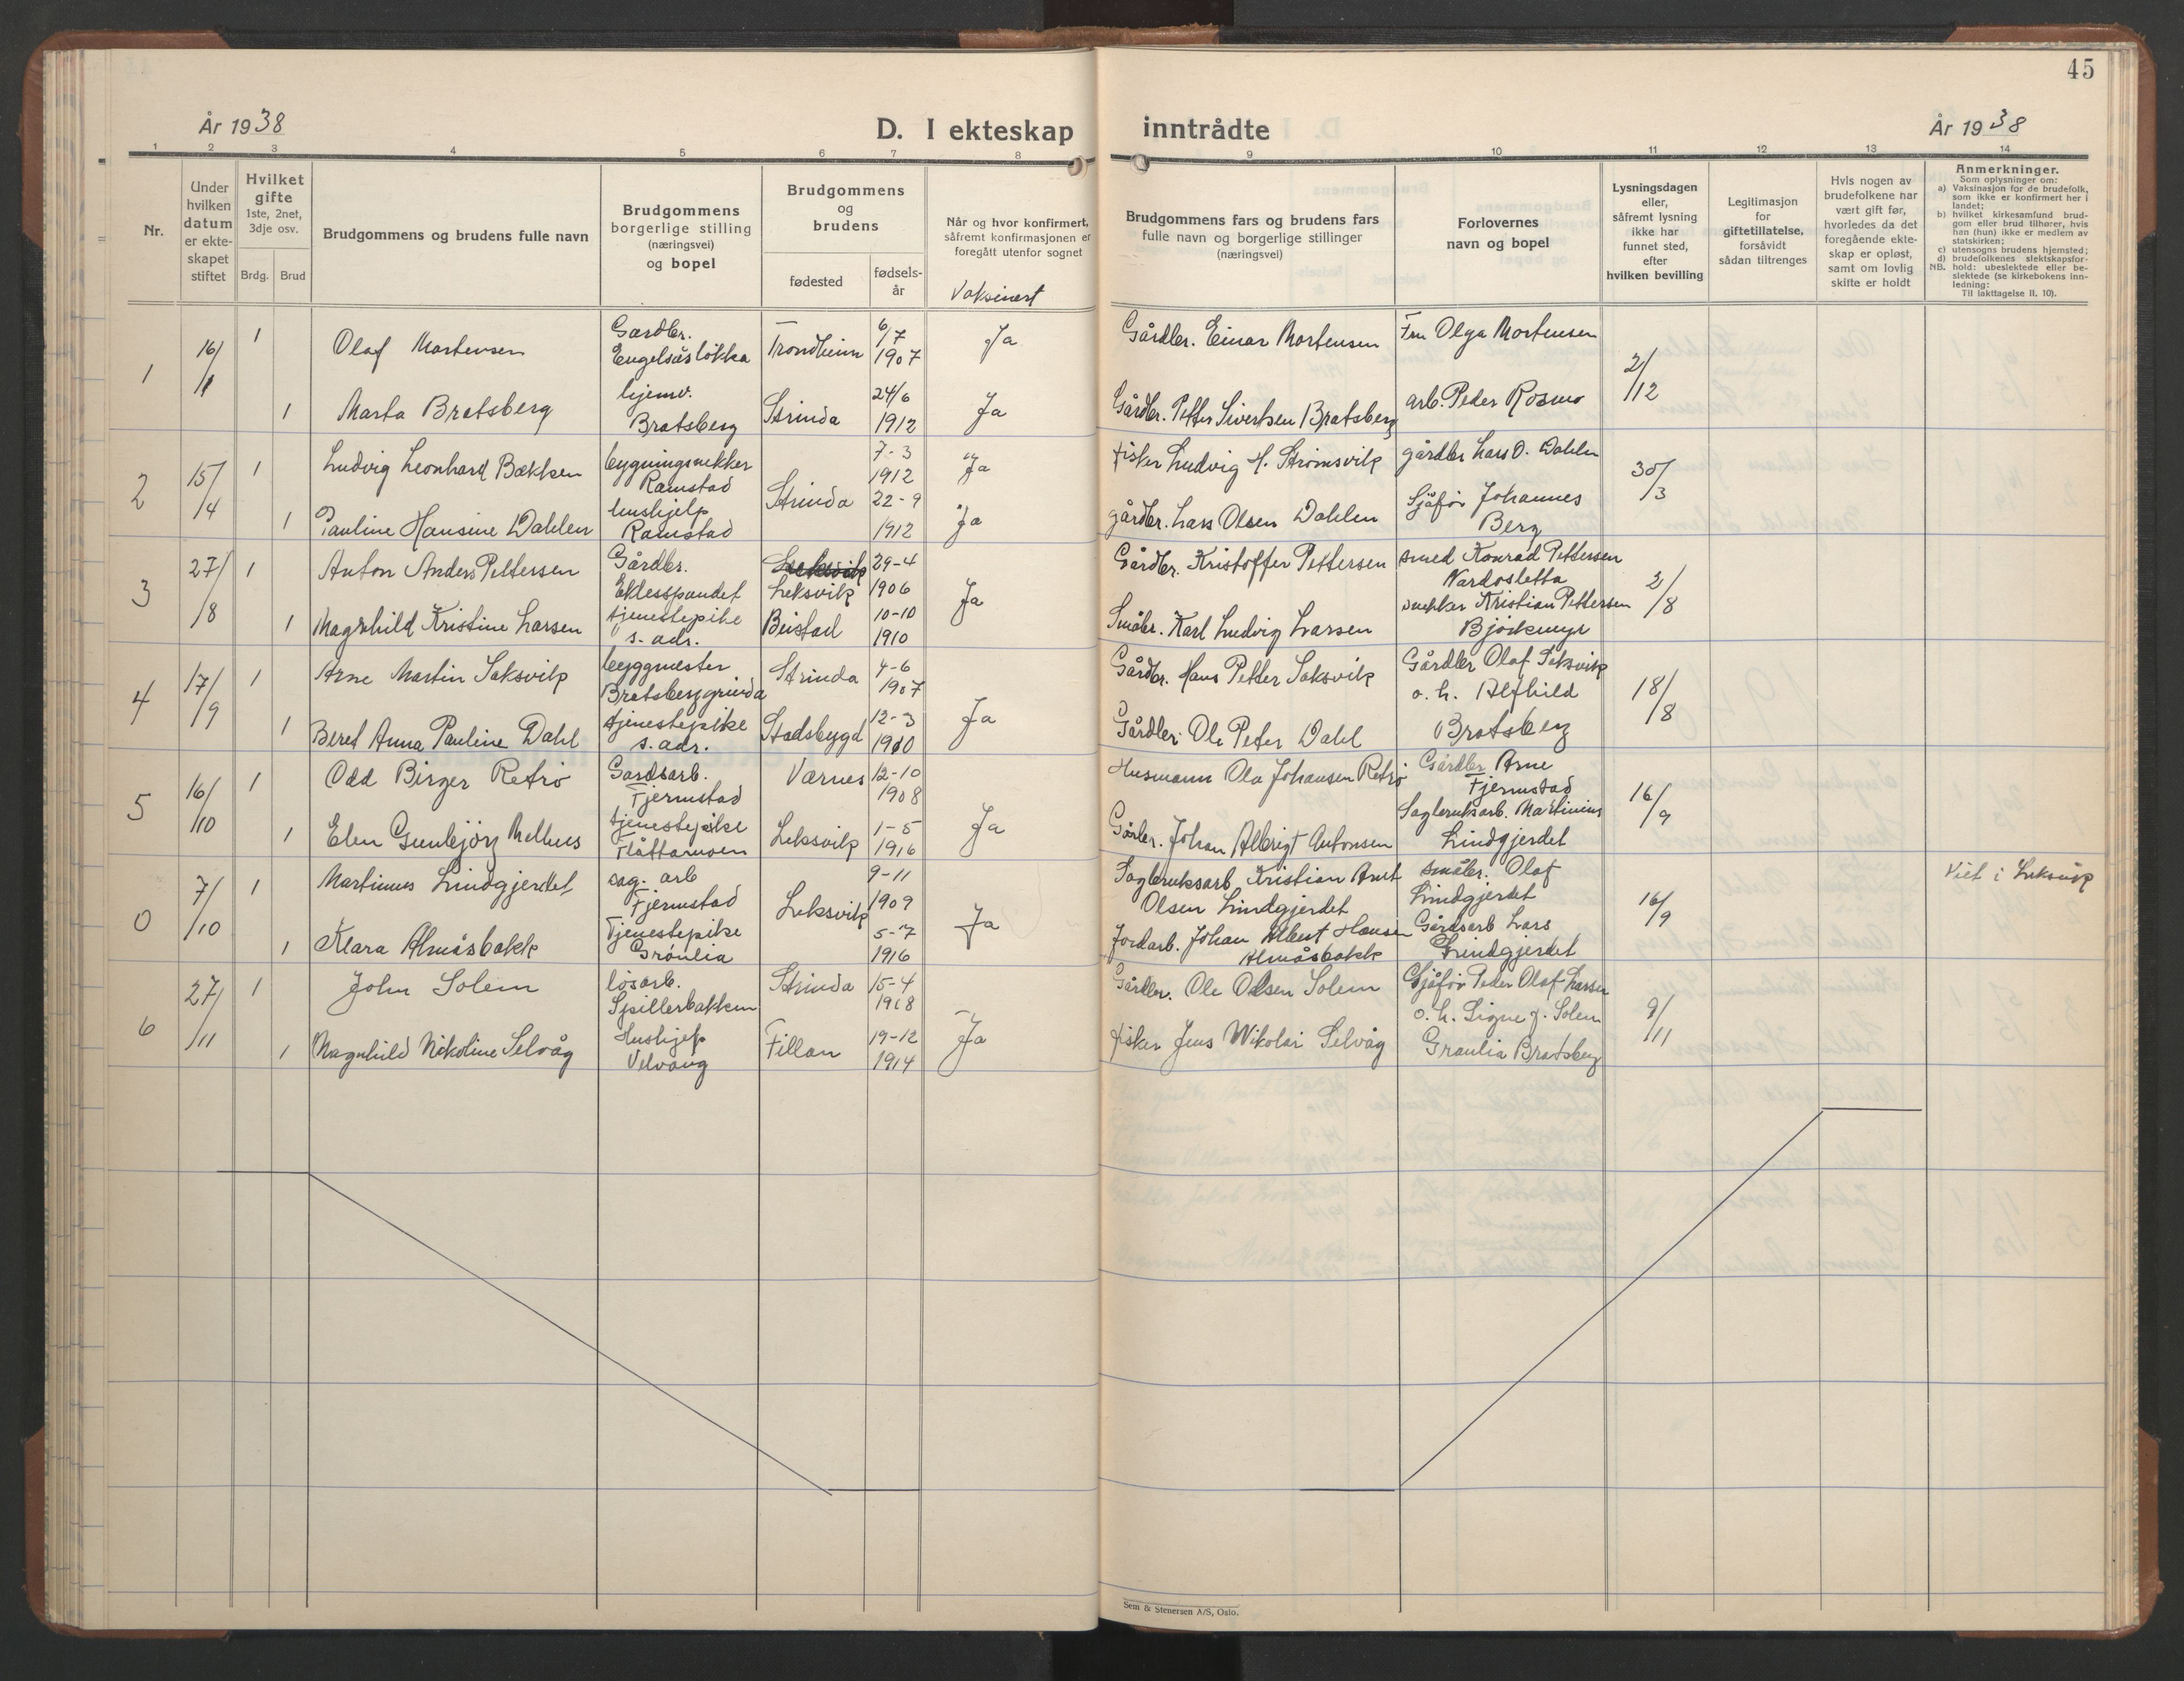 45
År 1938
D. I ekteskap inntrådte
År 1938
1 2 3 4 5 6 7 8 9 10 11 12 13 14
Nr.
Under hvilken datum er ekteskapet stiftet
Hvilket gifte
1ste, 2net, 3dje osv.
Brdg. Brud
Brudgommens og brudens fulle navn
Brudgommens borgerlige stilling (næringsvei) og bopel
Brudgommens og brudens
fødested
fødselsår
Når og hvor konfirmert, såfremt konfirmasjonen er foregått utenfor sognet
Vaksinert
Brudgommens fars og brudens fars fulle navn og borgerlige stillinger (næringsvei)
Forlovernes navn og bopel
Lysningsdagen eller, såfremt lysning ikke har funnet sted, efter hvilken bevilling
Legitimasjon for giftetillatelse, forsåvidt sådan tiltrenges
Hvis nogen av brudefolkene har vært gift før, hvorledes da det foregående ekteskap er opløst, samt om lovlig skifte er holdt
Anmerkninger.
Som oplysninger om:
a) Vaksinasjon for de brudefolk, som ikke er konfirmert her i landet;
b) hvilket kirkesamfund brudgom eller brud tilhører, hvis han (hun) ikke er medlem av statskirken;
c) utensogns brudens hjemsted;
d) brudefolkenes slektskapsforhold: ubeslektede eller beslektede (se kirkebokens innledning:
NB. Til iakttagelse II, 10).
1 16/1 1 Olaf Mortensen Gardbr. Engelsåsløkka Trondheim 6/7 1907 Ja Gårdbr. Einar Mortensen Fru Olga Mortensen 2/12
1 Marta Bratsberg hjemv. Bratsberg Strinda 24/6 1912 Ja Gårdbr. Petter Sivertsen Bratsberg arb. Peder Rosmo
2 15/4 1 Ludvig Leonhard Bækken bygningsnekker Ramstad 7-3 1912 Ja fisker Ludvig H. Strømsvik gårdbr Lars O. Dahlen 30/3
1 Pauline Hansine Dahlen hushjelp Ramstad Strinda 22-9 1912 Ja gårdbr. Lars Olsen Dahlen Sjåfør Johannes Berg
3 27/8 1 Anton Anders Pettersen Gårdbr. Eklesspandet Leksvik 29-4 1906 Gårdbr. Kristoffer Pettersen smed Konrad Pettersen Nardosletta 2/8
1 Magnhild Kristine Larsen tjenestepike s. adr. Beistad 10-10 1910 Ja Småbr. Karl Ludvig Larsen snekker Kristian Pettersen Bjørkmyr
4 17/9 1 Arne Martin Saksvik byggmester Bratsberggrinda Strinda 4-6 1907 Gårdbr. Hans Petter Saksvik Gårdbr Olaf Saksvik o. h. Alfhild Bratsberg 18/8
1 Beret Anna Pauline Dahl tjenestepike s. adr. Stadsbygd 12-3 1910 Ja Gårdbr. Ole Peter Dahl
5 16/10 1 Odd Birger Retrø Gardsarb. Tjernstad Værnes 12-10 1908 Husmann Ola Johansen Retrø Gårdbr Arne Tjernstad 16/9
1 Elen Gunbjørg Melhus tjenestepike Flåttamoen Leksvik 1-5 1916 Ja Gårbr. Johan Albrigt Antonsen Sagbruksarb. Martinius Lindgjerdet
0 7/10 1 Martinus Lindgjerdet sag. arb Tjernstad Leksvik 9-11 1909 Sagbruksarb Kristian Arnt Olsen Lindgjerdet småbr. Olaf Lindgjerdet 16/9 Viet i Leksvik
1 Klara Almåsbakk Tjenestepike Grønlia 5-7 1916 Ja Jordarb. Johan Albert Hansen Almåsbakk Gårdsarb Lars Lindgjerdet
6 27/11 1 John Solem løsarb. Spillerbakken Strinda 15-4 1918 Gårdbr. Ole Olsen Solem Sjåfør Peder Olaf Larsen o. h. Signe J. Solem 9/11
1 Magnhild Nikoline Selvåg Hushjep Velvang Fillan 19-12 1914 Ja fisker Jens Nikolai Selvåg Granlia Bratsberg
Sem & Stenersen A/S, Oslo.